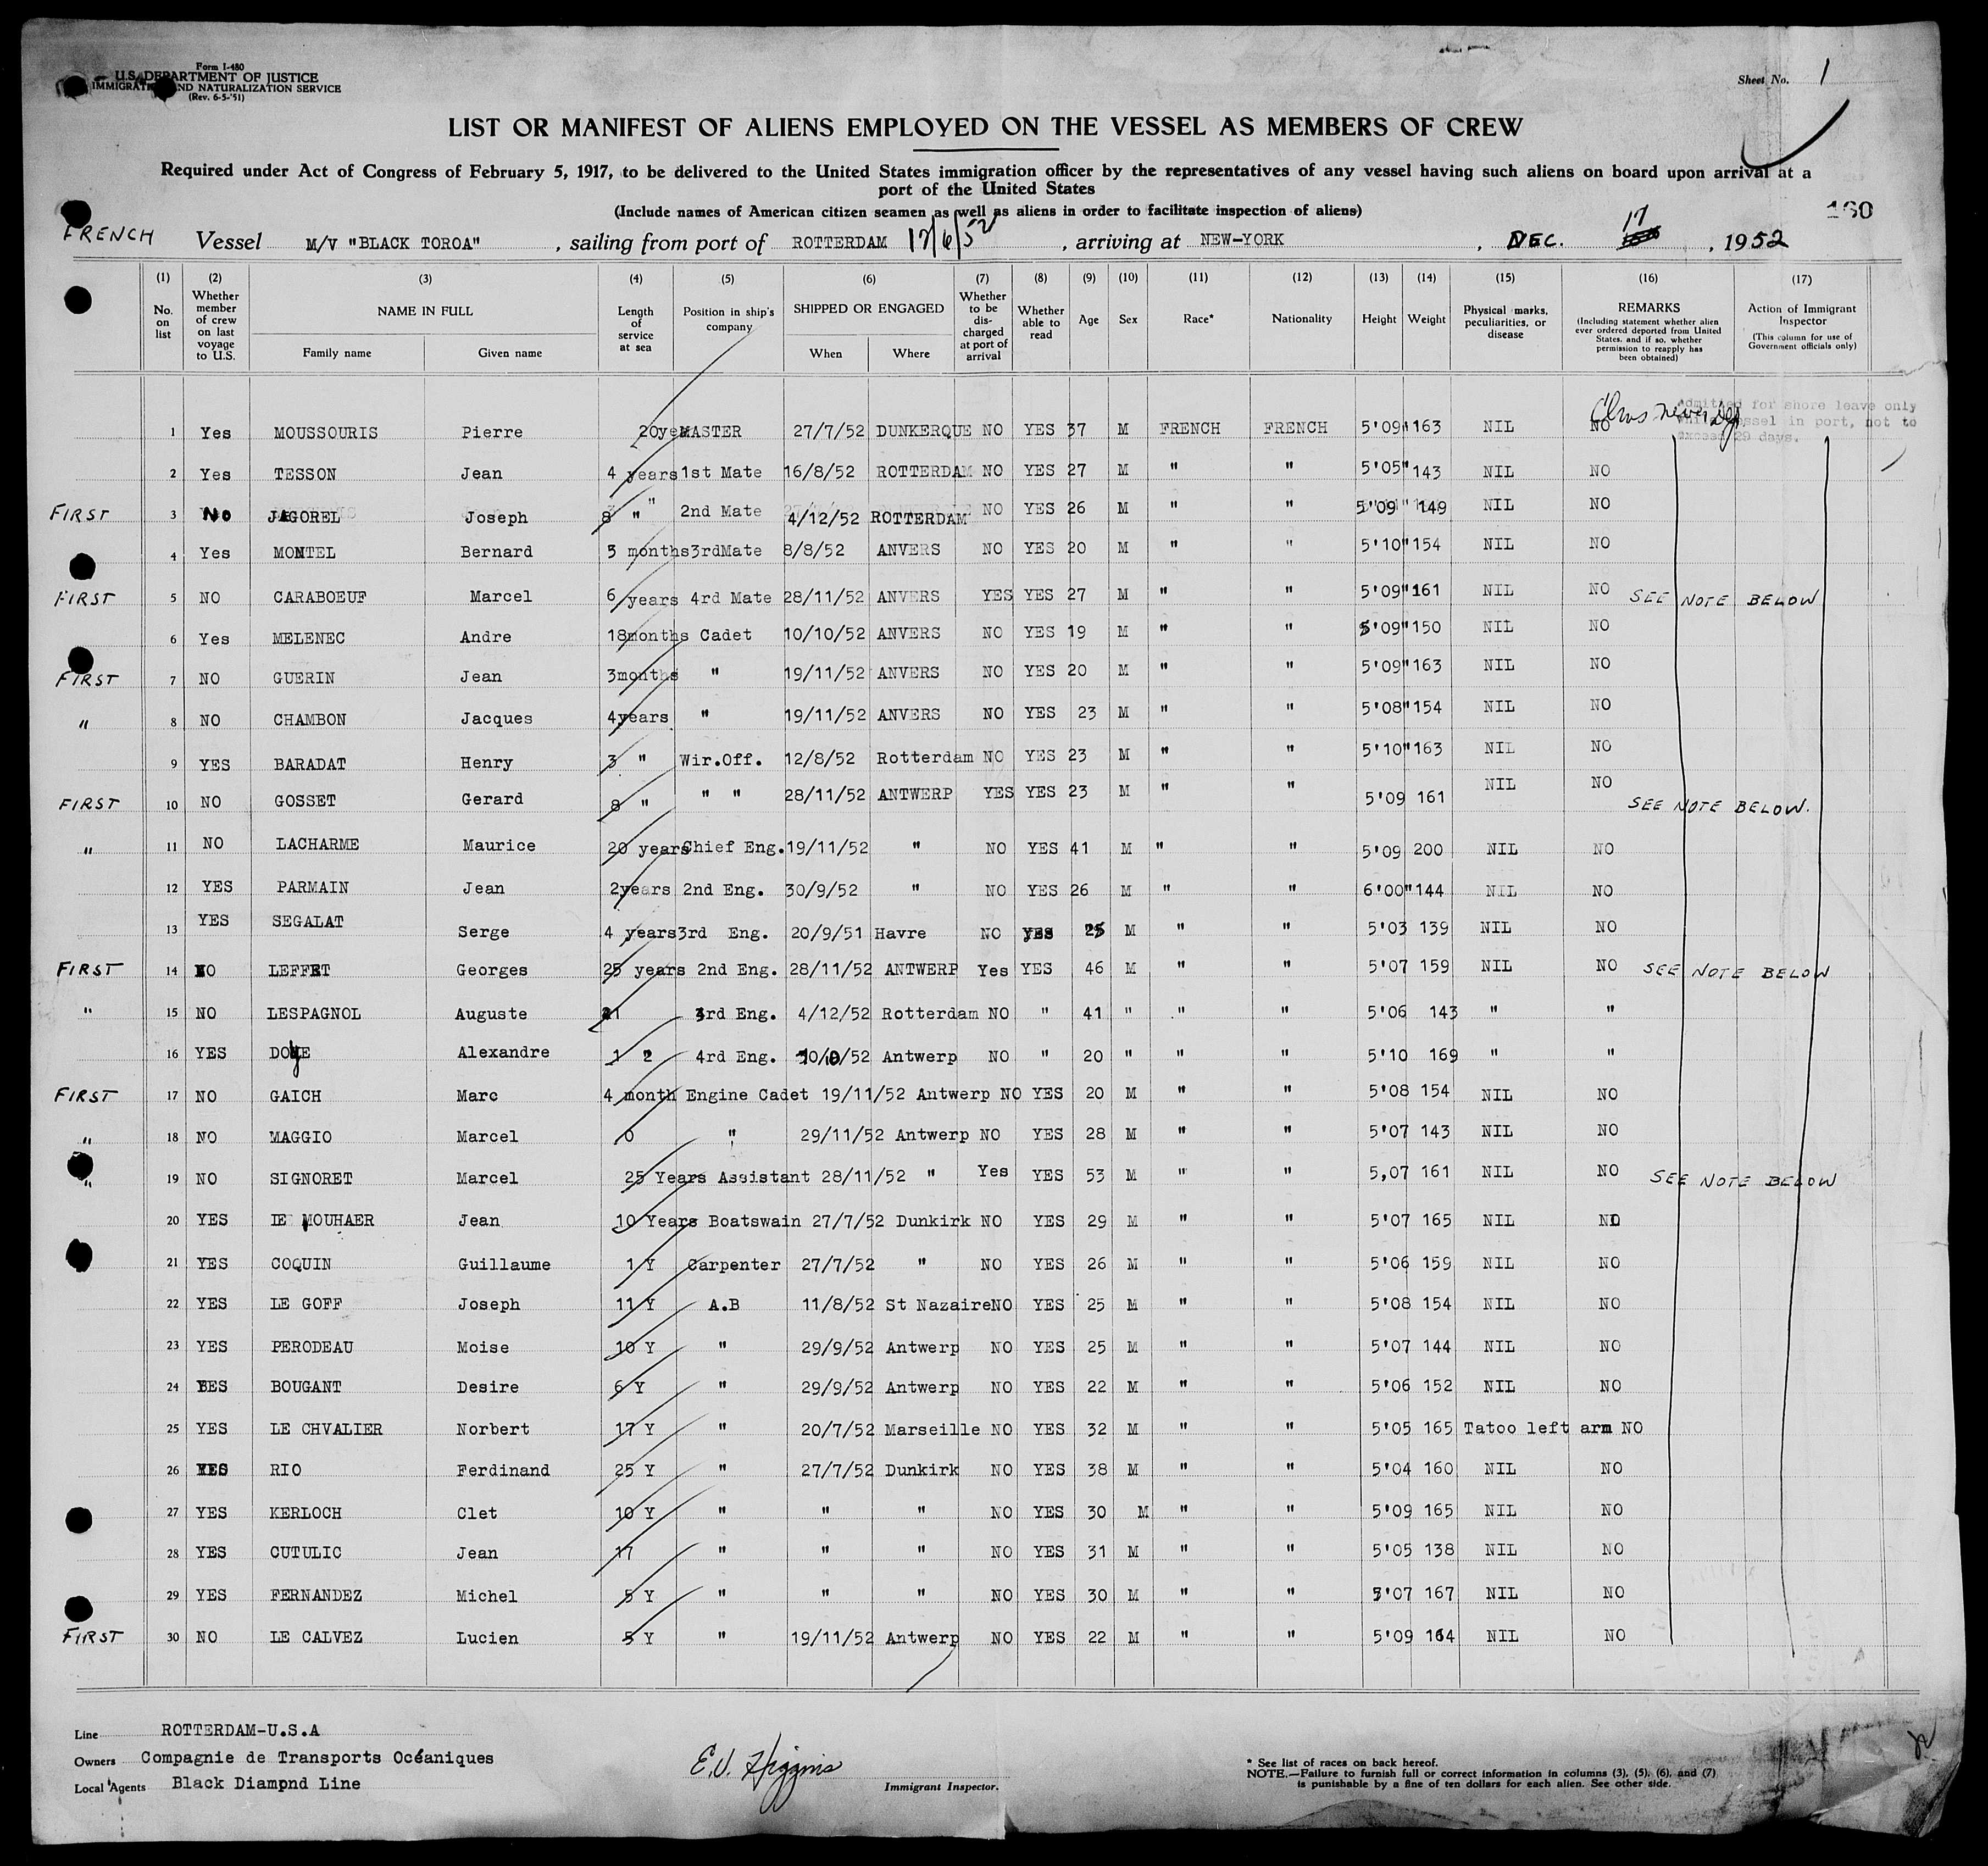 Form I-480
U.S. DEPARTMENT OF JUSTICE
IMMIGRATION AND NATURALIZATION SERVICE
(Rev. 6-5-'51)
Sheet No. 1
LIST OR MANIFEST OF ALIENS EMPLOYED ON THE VESSEL AS MEMBERS OF CREW
Required under Act of Congress of February 5, 1917, to be delivered to the United States immigration officer by the representatives of any vessel having such aliens on board upon arrival at a
port of the United States
(Include names of American citizen seamen as well as aliens in order to facilitate inspection of aliens)
160
FRENCH Vessel M/V "BLACK TOROA", sailing from port of ROTTERDAM 12/6/52, arriving at NEW-YORK, DEC. 17, 1952
(1) (2) (3) (4) (5) (6) (7) (8) (9) (10) (11) (12) (13) (14) (15) (16) (17)
No. on list
Whether member of crew on last voyage to U.S.
NAME IN FULL
Family name Given name
Length of service at sea
Position in ship's company
SHIPPED OR ENGAGED
When Where
Whether to be discharged at port of arrival
Whether able to read
Age Sex Race* Nationality Height Weight
Physical marks, peculiarities, or disease
REMARKS
(Including statement whether alien ever ordered deported from United States, and if so, whether permission to reapply has been obtained)
Action of Immigrant Inspector
(This column for use of Government officials only)
Admitted for shore leave only
while vessel in port, not to
exceed 29 days.
1 Yes MOUSSOURIS Pierre 20yea MASTER 27/7/52 DUNKERQUE NO YES 37 M FRENCH FRENCH 5'09" 163 NIL NO
2 Yes TESSON Jean 4 years 1st Mate 16/8/52 ROTTERDAM NO YES 27 M " " 5'05" 143 NIL NO
FIRST 3 No JAGOREL Joseph 8 " 2nd Mate 4/12/52 ROTTERDAM NO YES 26 M " " 5'09" 149 NIL NO
4 Yes MONTEL Bernard 3 months 3rdMate 8/8/52 ANVERS NO YES 20 M " " 5'10" 154 NIL NO
FIRST 5 NO CARABOEUF Marcel 6 years 4rd Mate 28/11/52 ANVERS YES YES 27 M " " 5'09" 161 NIL NO SEE NOTE BELOW
6 Yes MELENEC Andre 18months Cadet 10/10/52 ANVERS NO YES 19 M " " 5'09" 150 NIL NO
FIRST 7 NO GUERIN Jean 3months " 19/11/52 ANVERS NO YES 20 M " " 5'09" 163 NIL NO
" 8 NO CHAMBON Jacques 4years " 19/11/52 ANVERS NO YES 23 M " " 5'08" 154 NIL NO
9 YES BARADAT Henry 3 " Wir.Off. 12/8/52 Rotterdam NO YES 23 M " " 5'10" 163 NIL NO
FIRST 10 NO GOSSET Gerard 8 " " " 28/11/52 ANTWERP YES YES 23 M " " 5'09 161 NIL NO SEE NOTE BELOW.
" 11 NO LACHARME Maurice 20 years Chief Eng. 19/11/52 " NO YES 41 M " " 5'09 200 NIL NO
12 YES PARMAIN Jean 2years 2nd Eng. 30/9/52 " NO YES 26 M " " 6'00" 144 NIL NO
13 YES SEGALAT Serge 4 years 3rd Eng. 20/9/51 Havre NO YES 25 M " " 5'03 139 NIL NO
FIRST 14 NO LEFFET Georges 25 years 2nd Eng. 28/11/52 ANTWERP Yes YES 46 M " " 5'07 159 NIL NO SEE NOTE BELOW
" 15 NO LESPAGNOL Auguste 21 3rd Eng. 4/12/52 Rotterdam NO " 41 " " " 5'06 143 " "
16 YES DOYE Alexandre 1 " 4rd Eng. 10/52 Antwerp NO " 20 " " " 5'10 169 " "
FIRST 17 NO GAICH Marc 4 month Engine Cadet 19/11/52 Antwerp NO YES 20 M " " 5'08 154 NIL NO
" 18 NO MAGGIO Marcel 0 " 29/11/52 Antwerp NO YES 28 M " " 5'07 143 NIL NO
" 19 NO SIGNORET Marcel 25 Years Assistant 28/11/52 " Yes YES 53 M " " 5,07 161 NIL NO SEE NOTE BELOW
20 YES LE MOUHAER Jean 10 Years Boatswain 27/7/52 Dunkirk NO YES 29 M " " 5'07 165 NIL NO
21 YES COQUIN Guillaume 1 Y Carpenter 27/7/52 " NO YES 26 M " " 5'06 159 NIL NO
22 YES LE GOFF Joseph 11 Y A.B 11/8/52 St Nazaire NO YES 25 M " " 5'08 154 NIL NO
23 YES PERODEAU Moise 10 Y " 29/9/52 Antwerp NO YES 25 M " " 5'07 144 NIL NO
24 YES BOUGANT Desire 6 Y " 29/9/52 Antwerp NO YES 22 M " " 5'06 152 NIL NO
25 YES LE CHVALIER Norbert 17 Y " 20/7/52 Marseille NO YES 32 M " " 5'05 165 Tatoo left arm NO
26 YES RIO Ferdinand 25 Y " 27/7/52 Dunkirk NO YES 38 M " " 5'04 160 NIL NO
27 YES KERLOCH Clet 10 Y " " " NO YES 30 M " " 5'09 165 NIL NO
28 YES CUTULIC Jean 17 " " " NO YES 31 M " " 5'05 138 NIL NO
29 YES FERNANDEZ Michel 5 Y " " " NO YES 30 M " " 5'07 167 NIL NO
FIRST 30 NO LE CALVEZ Lucien 5 Y " 19/11/52 Antwerp NO YES 22 M " " 5'09 164 NIL NO
Line ROTTERDAM-U.S.A
Owners Compagnie de Transports Océaniques
Local Agents Black Diampnd Line
E.V. Higgins
Immigrant Inspector.
* See list of races on back hereof.
NOTE.—Failure to furnish full or correct information in columns (3), (5), (6), and (7)
is punishable by a fine of ten dollars for each alien. See other side.